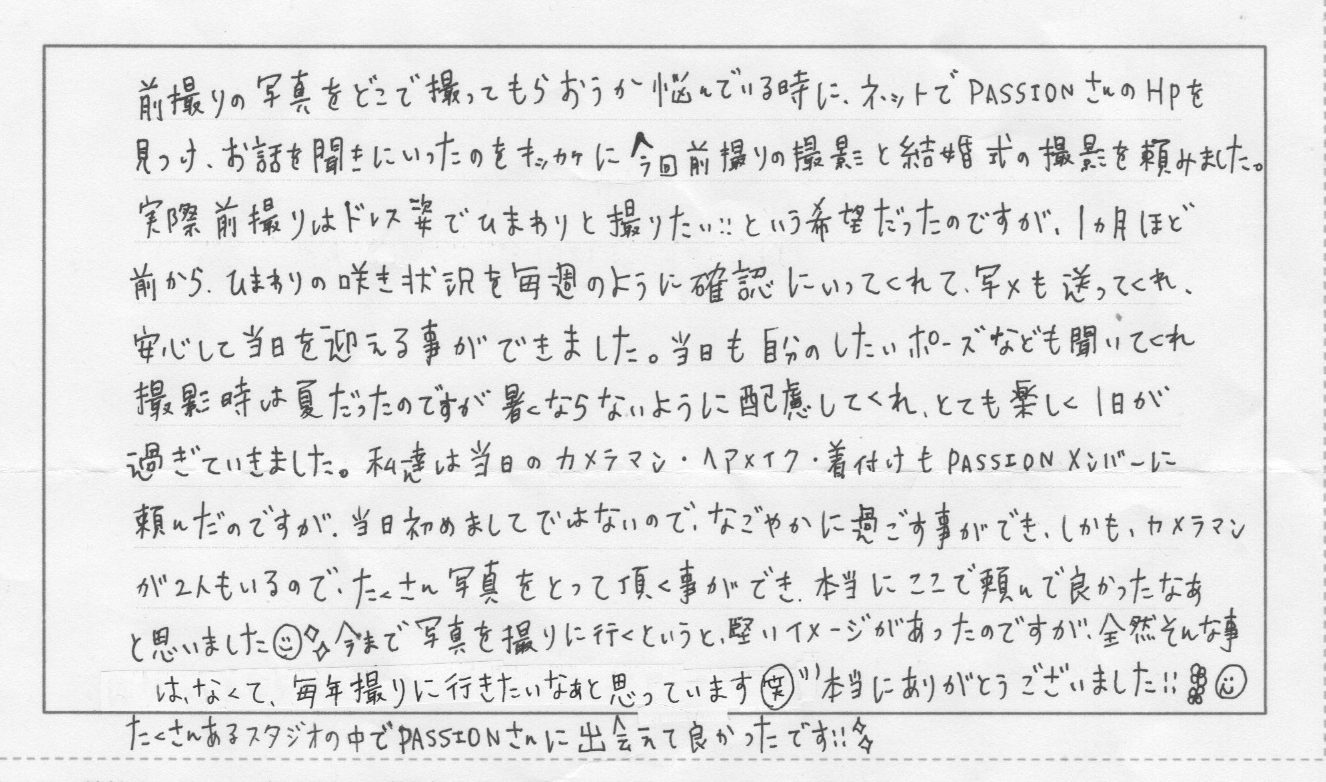 前撮りの写真をどこで撮ってもらおうか悩んでいる時に、ネットでPASSIONさんのHPを
見つけ、お話を聞きにいったのをキッカケに今回前撮りの撮影と結婚式の撮影を頼みました。
実際前撮りはドレス姿でひまわりと撮りたい!!という希望だったのですが、1ヵ月ほど
前から、ひまわりの咲き状況を毎週のように確認にいってくれて、写メも送ってくれ、
安心して当日を迎える事ができました。当日も自分のしたいポーズなども聞いてくれ
撮影時は夏だったのですが暑くならないように配慮してくれ、とても楽しく1日が
過ぎていきました。私達は当日のカメラマン・ヘアメイク・着付けもPASSIONメンバーに
頼んだのですが、当日初めましてではないので、なごやかに過ごす事ができ、しかも、カメラマン
が2人もいるので、たくさん写真をとって頂く事ができ、本当にここで頼んで良かったなあ
と思いました☺✧今まで写真を撮りに行くというと、堅いイメージがあったのですが、全然そんな事
は、なくて、毎年撮りに行きたいなあと思っています㊤本当にありがとうございました!!☺
たくさんあるスタジオの中でPASSIONさんに出会えて良かったです!!✧